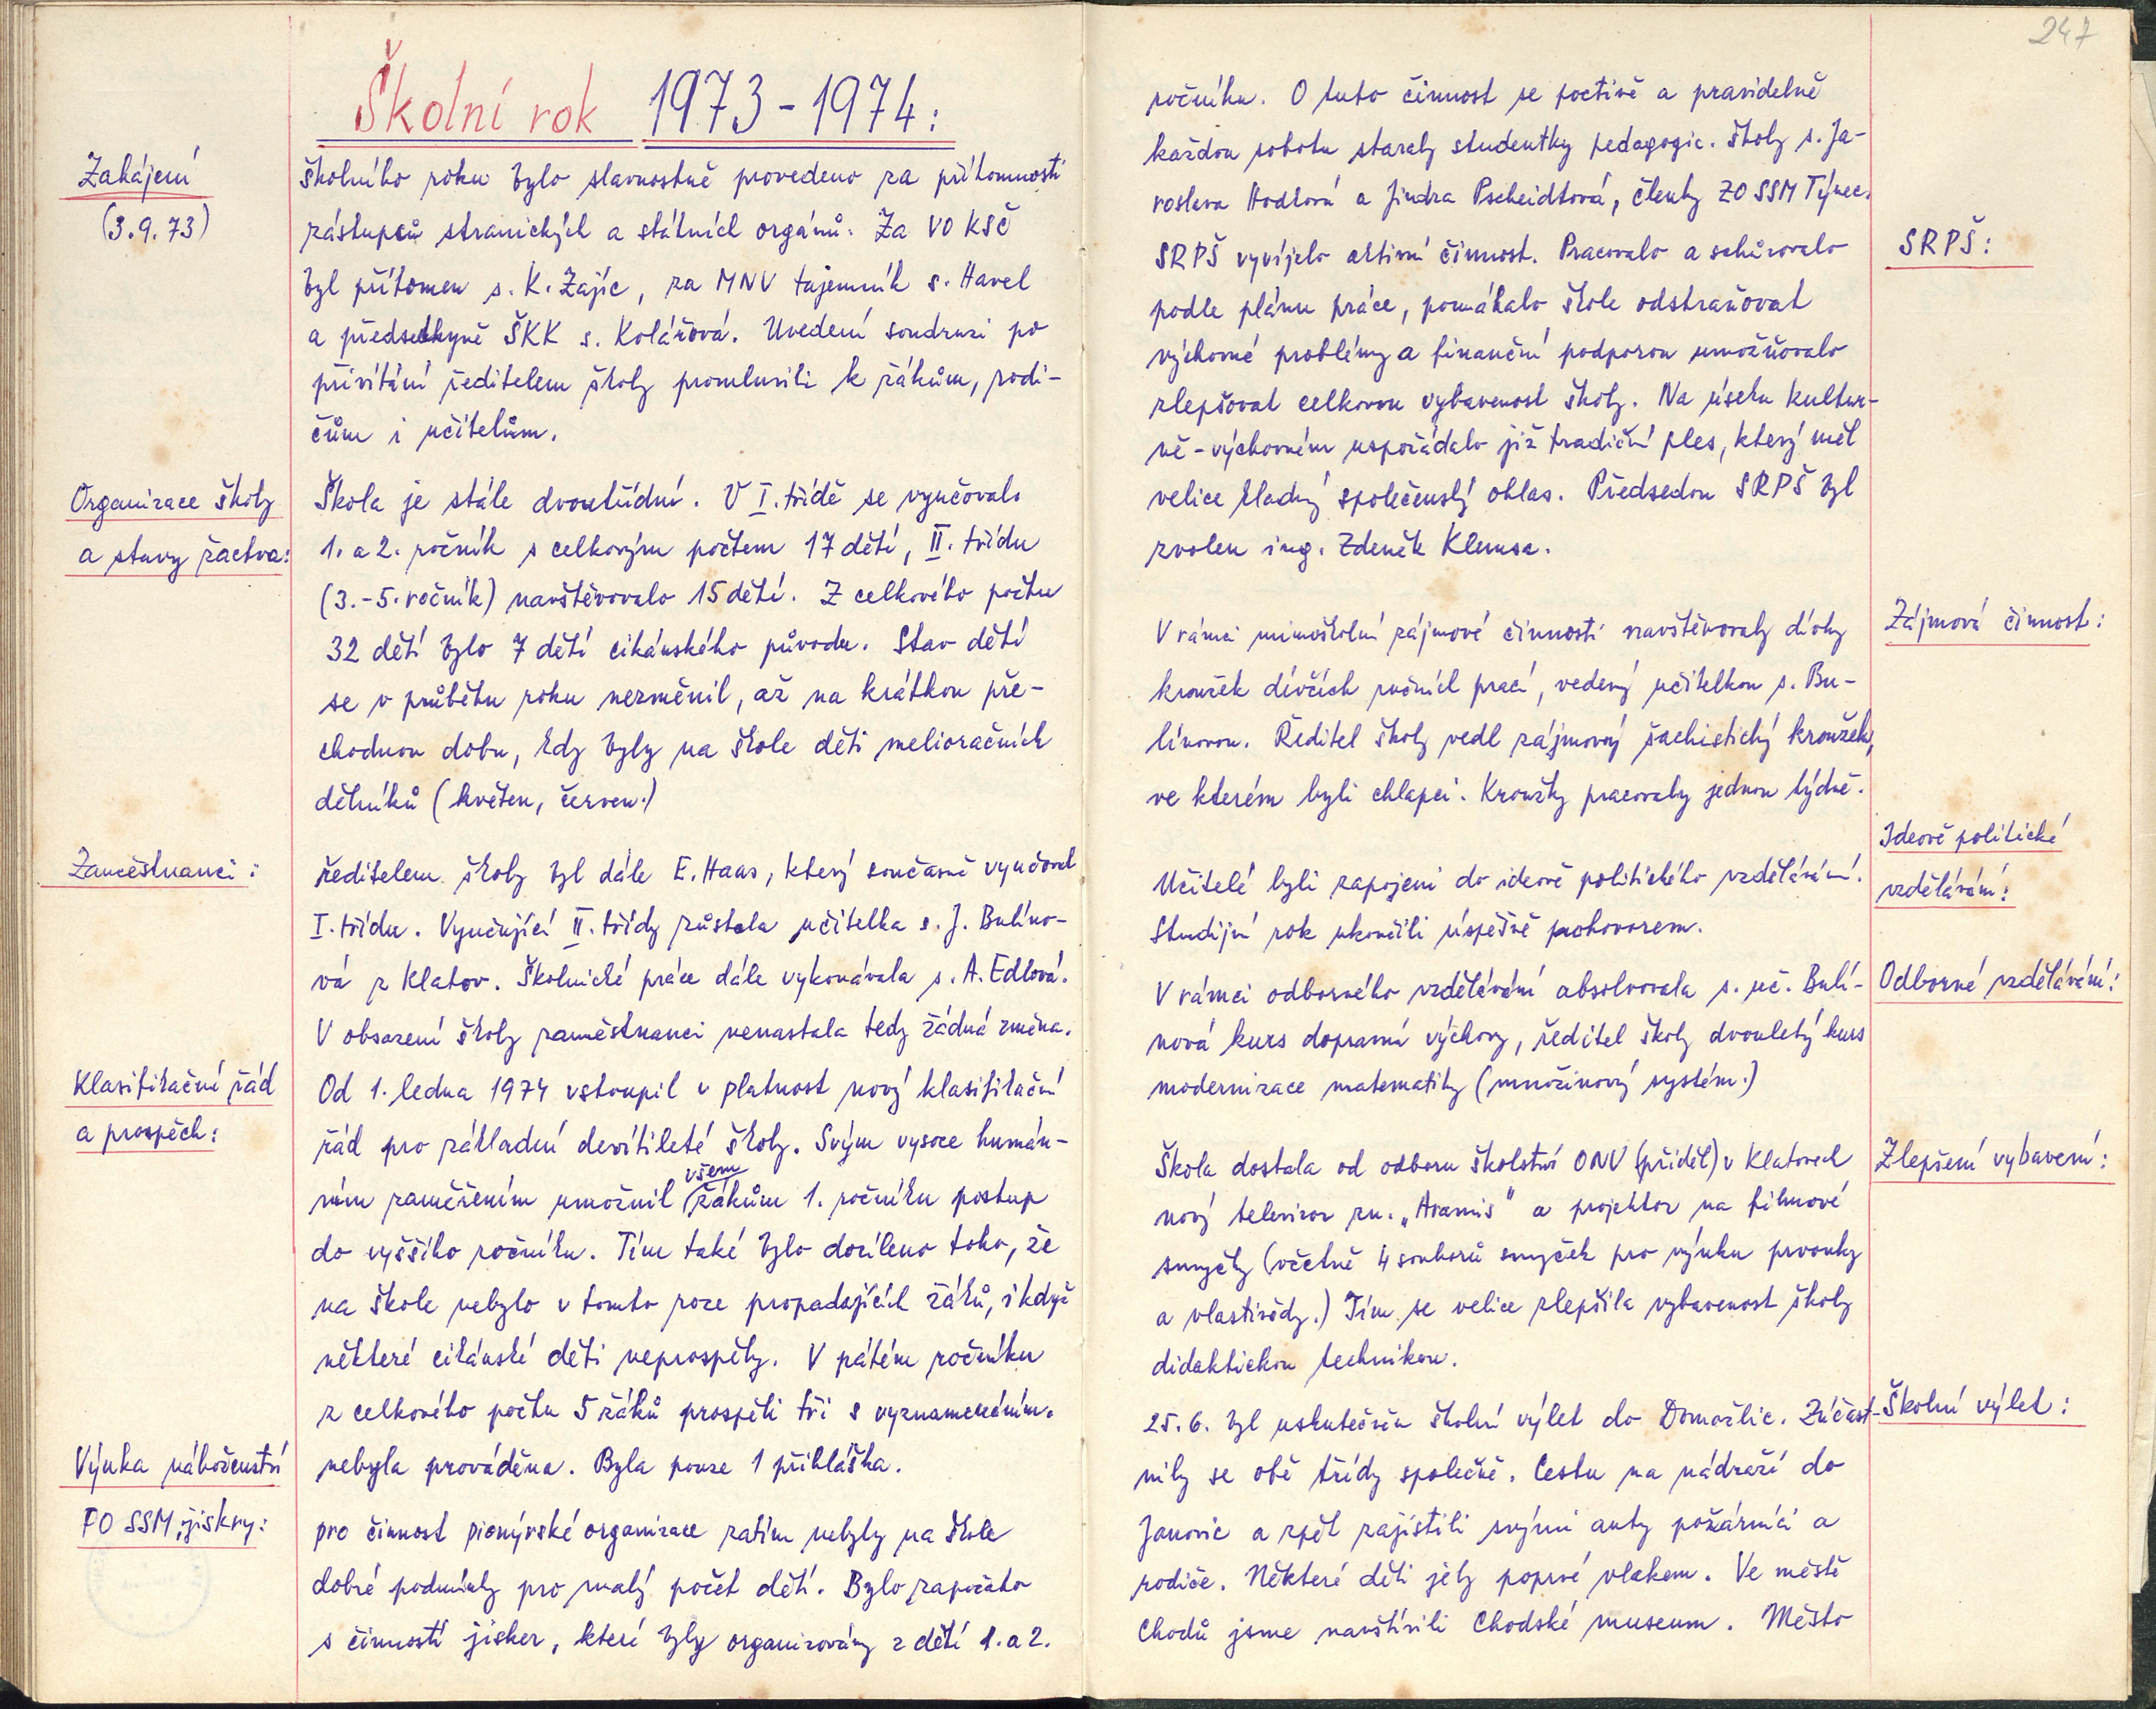 247
Školní rok 1973-1974:
Zahájení
(3.9.73)
školního roku bylo slavnostně provedeno za přítomnosti
zástupců stranických a státních orgánů. Za VO KSČ
byl přítomen s. K. Zajíc, za MNV tajemník s. Havel
a předsedkyně ŠKK s. Kolářová. Uvedení soudruzi po
přivítání ředitelem školy promluvili k žákům, rodi-
čům i učitelům.
Organizace školy
a stavy žactva:
Škola je stále dvoutřídní. V I. třídě se vyučovalo
1. a 2. ročník s celkovým počtem 17 dětí, II. třídu
(3.-5. ročník) navštěvovalo 15 dětí. Z celkového počtu
32 dětí bylo 7 dětí cikánského původu. Stav dětí
se v průběhu roku nezměnil, až na krátkou pře-
chodnou dobu, kdy byly na škole děti melioračních
dělníků (květen, červen.)
Zaměstnanci:
Ředitelem školy byl dále E. Haas, který současně vyučoval
I. třídu. Vyučující II. třídy zůstala učitelka s. J. Bulíno-
vá z Klatov. Školnické práce dále vykonávala s. A. Edlová.
V obsazení školy zaměstnanci nenastala tedy žádná změna.
Klasifikační řád
a prospěch:
Od 1. ledna 1974 vstoupil v platnost nový klasifikační
řád pro základní devítileté školy. Svým vysoce humán-
ním zaměřením umožnil všem žákům 1. ročníku postup
do vyššího ročníku. Tím také bylo docíleno toho, že
na škole nebylo v tomto roce propadajících žáků, i když
některé cikánské děti neprospěly. V pátém ročníku
z celkového počtu 5 žáků prospěli tři s vyznamenáním.
Výuka náboženství
nebyla prováděna. Byla pouze 1 přihláška.
PO SSM, jiskry:
pro činnost pionýrské organizace zatím nebyly na škole
dobré podmínky pro malý počet dětí. Bylo započato
s činností jisker, které byly organizovány z dětí 1. a 2.
ročníku. O tuto činnost se poctivě a pravidelně
každou sobotu staraly studentky pedagogic. školy s. Ja-
roslava Hodlová a Jindra Pscheidtová, členky ZO SSM Týnec.
SRPŠ:
SRPŠ vyvíjelo aktivní činnost. Pracovalo a schůzovalo
podle plánu práce, pomáhalo škole odstraňovat
výchovné problémy a finanční podporou umožňovalo
zlepšovat celkovou vybavenost školy. Na úseku kultur-
ně-výchovném uspořádalo již tradiční ples, který měl
velice kladný společenský ohlas. Předsedou SRPŠ byl
zvolen ing. Zdeněk Klemsa.
Zájmová činnost:
V rámci mimoškolní zájmové činnosti navštěvovaly dívky
kroužek dívčích ručních prací, vedený učitelkou s. Bu-
línovou. Ředitel školy vedl zájmový šachistický kroužek,
ve kterém byli chlapci. Kroužky pracovaly jednou týdně.
Ideově politické
vzdělávání:
Učitelé byli zapojeni do ideově politického vzdělávání.
Studijní rok ukončili úspěšně pohovorem.
Odborné vzdělávání:
V rámci odborného vzdělávání absolvovala s. uč. Bulí-
nová kurs dopravní výchovy, ředitel školy dvouletý kurs
modernizace matematiky (množinový systém.)
Zlepšení vybavení:
Škola dostala od odboru školství ONV (příděl) v Klatovech
nový televizor zn. „Aramis" a projektor na filmové
smyčky (včetně 4 souborů smyček pro výuku prvouky
a vlastivědy.) Tím se velice zlepšila vybavenost školy
didaktickou technikou.
Školní výlet:
25.6. byl uskutečněn školní výlet do Domažlic. Zúčast-
nily se obě třídy společně. Cestu na nádraží do
Janovic a zpět zajistili svými auty požárníci a
rodiče. Některé děti jely poprvé vlakem. Ve městě
Chodů jsme navštívili Chodské museum. Město